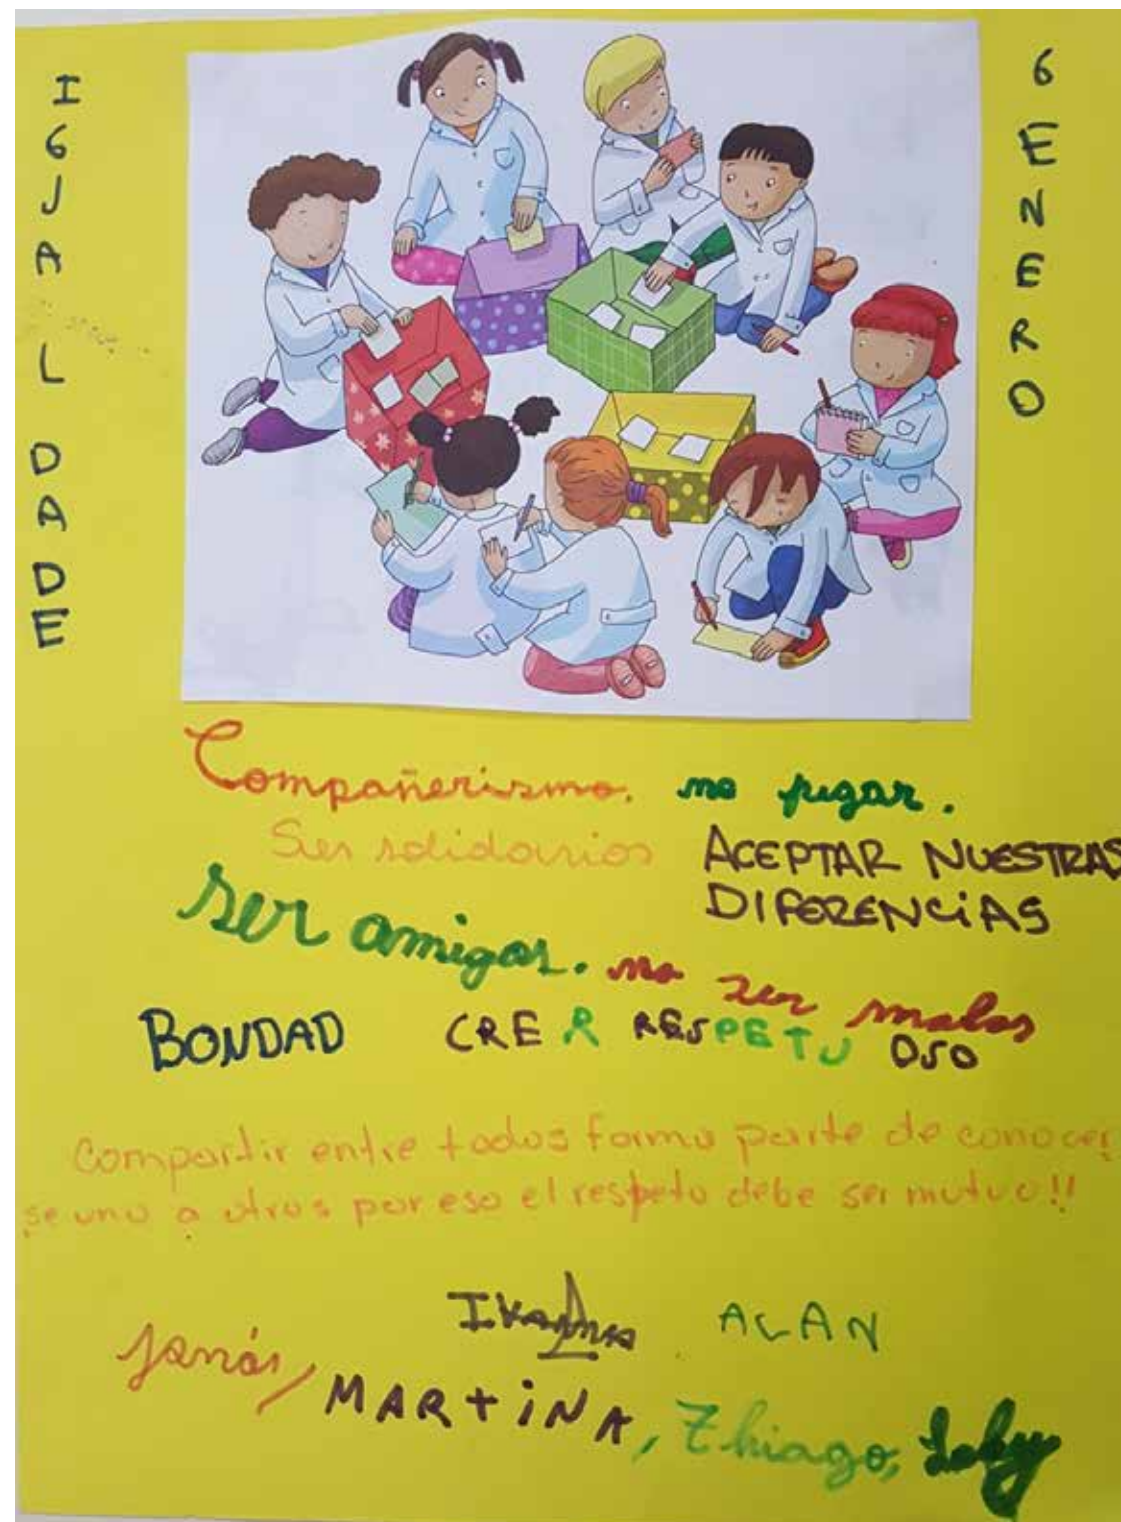 IGJALDAD DE
GENERO
Compañerismo. no pegar.
Ser solidarios
ACEPTAR NUESTRAS
DIFERENCIAS
Ser amigos. no ser malos
BONDAD
CRER RESPETUOSO
Compartir entre todos forma parte de conocer
se uno a otros por eso el respeto debe ser mutuo!!
ALAN
MARTiNA, Thiago,